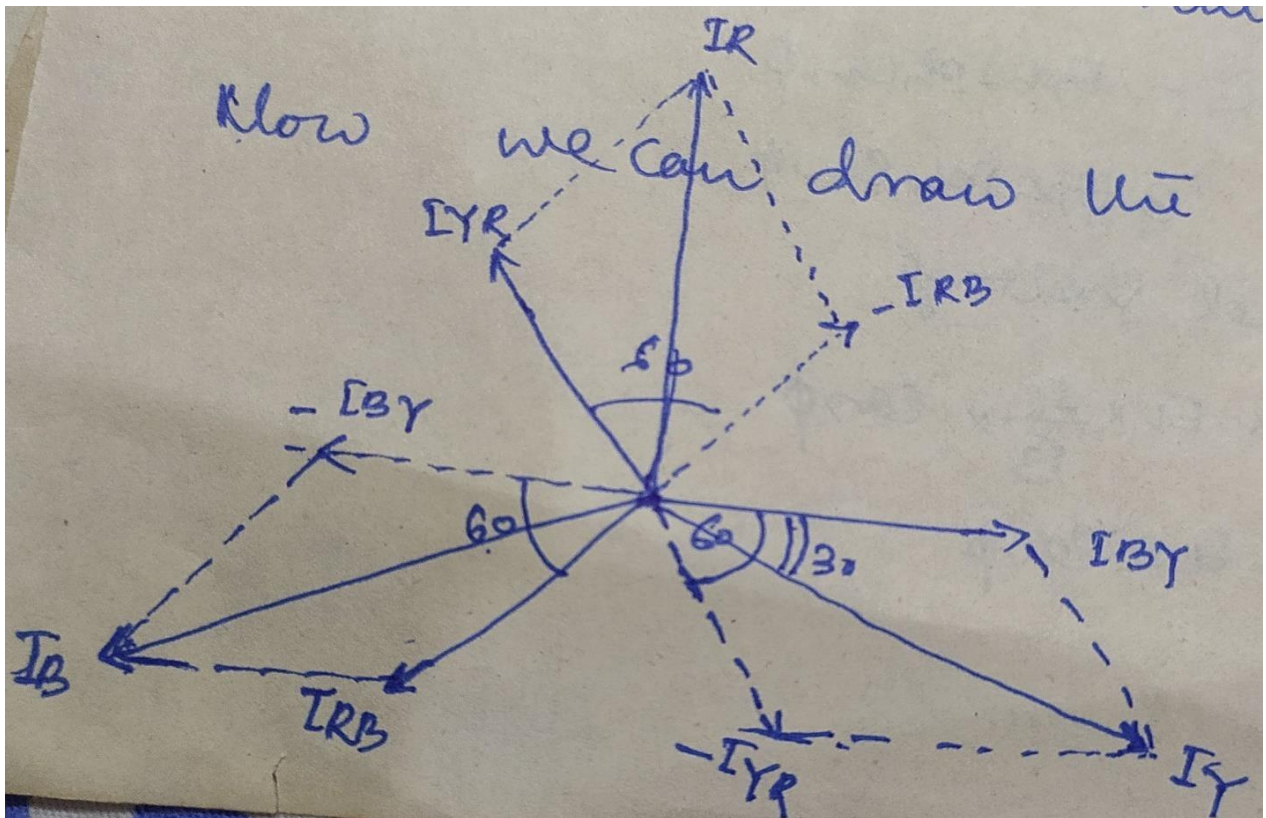 IR
Now we can draw the
IYR
- IRB
60
- IBY
60
60
30
IBY
IB
IRB
-IYR
IY